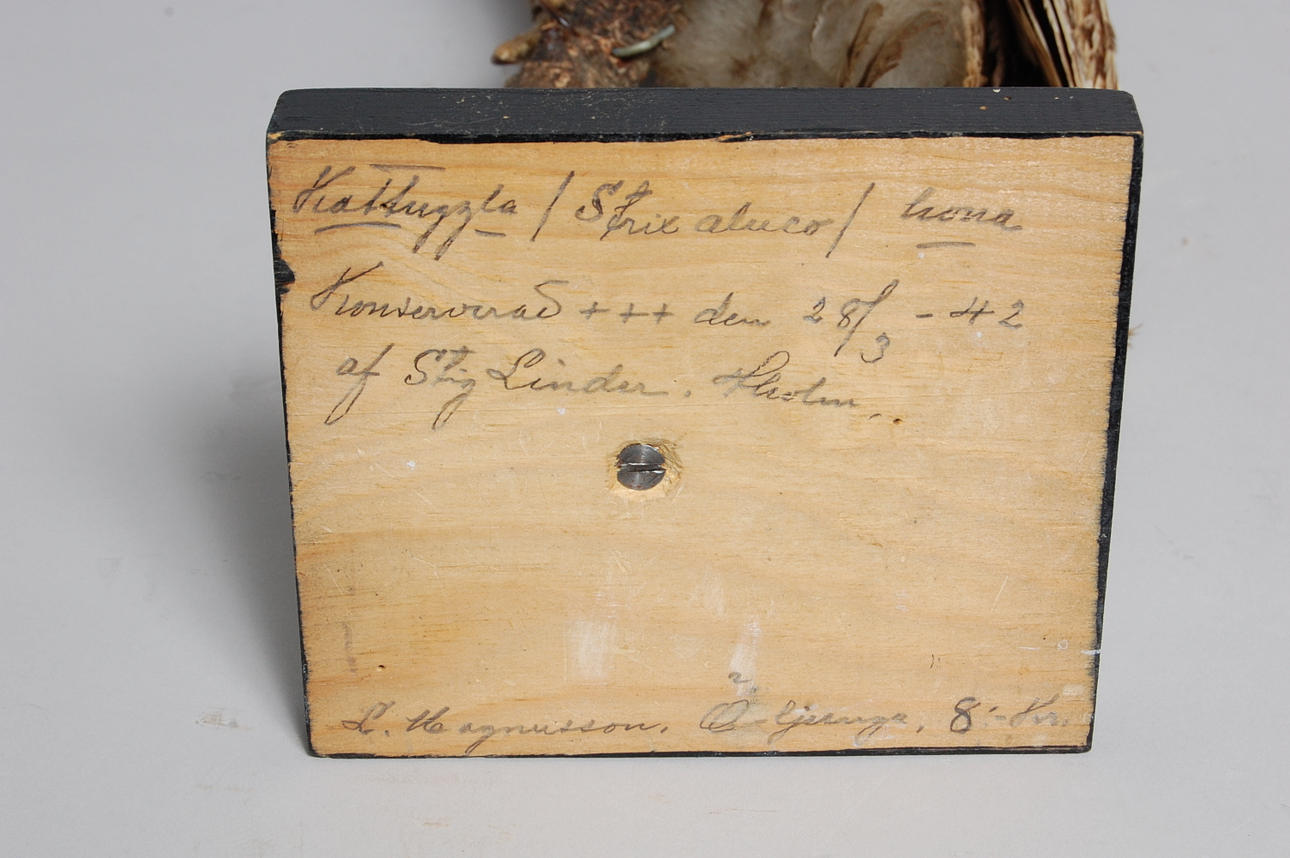 Kattuggla / Strix aluco / hona
Konserverad +++ den 28/3 - 42
af Stig Linder. Sholm.
L. Magnusson. Ö. Ljunga, 8:- Kr.